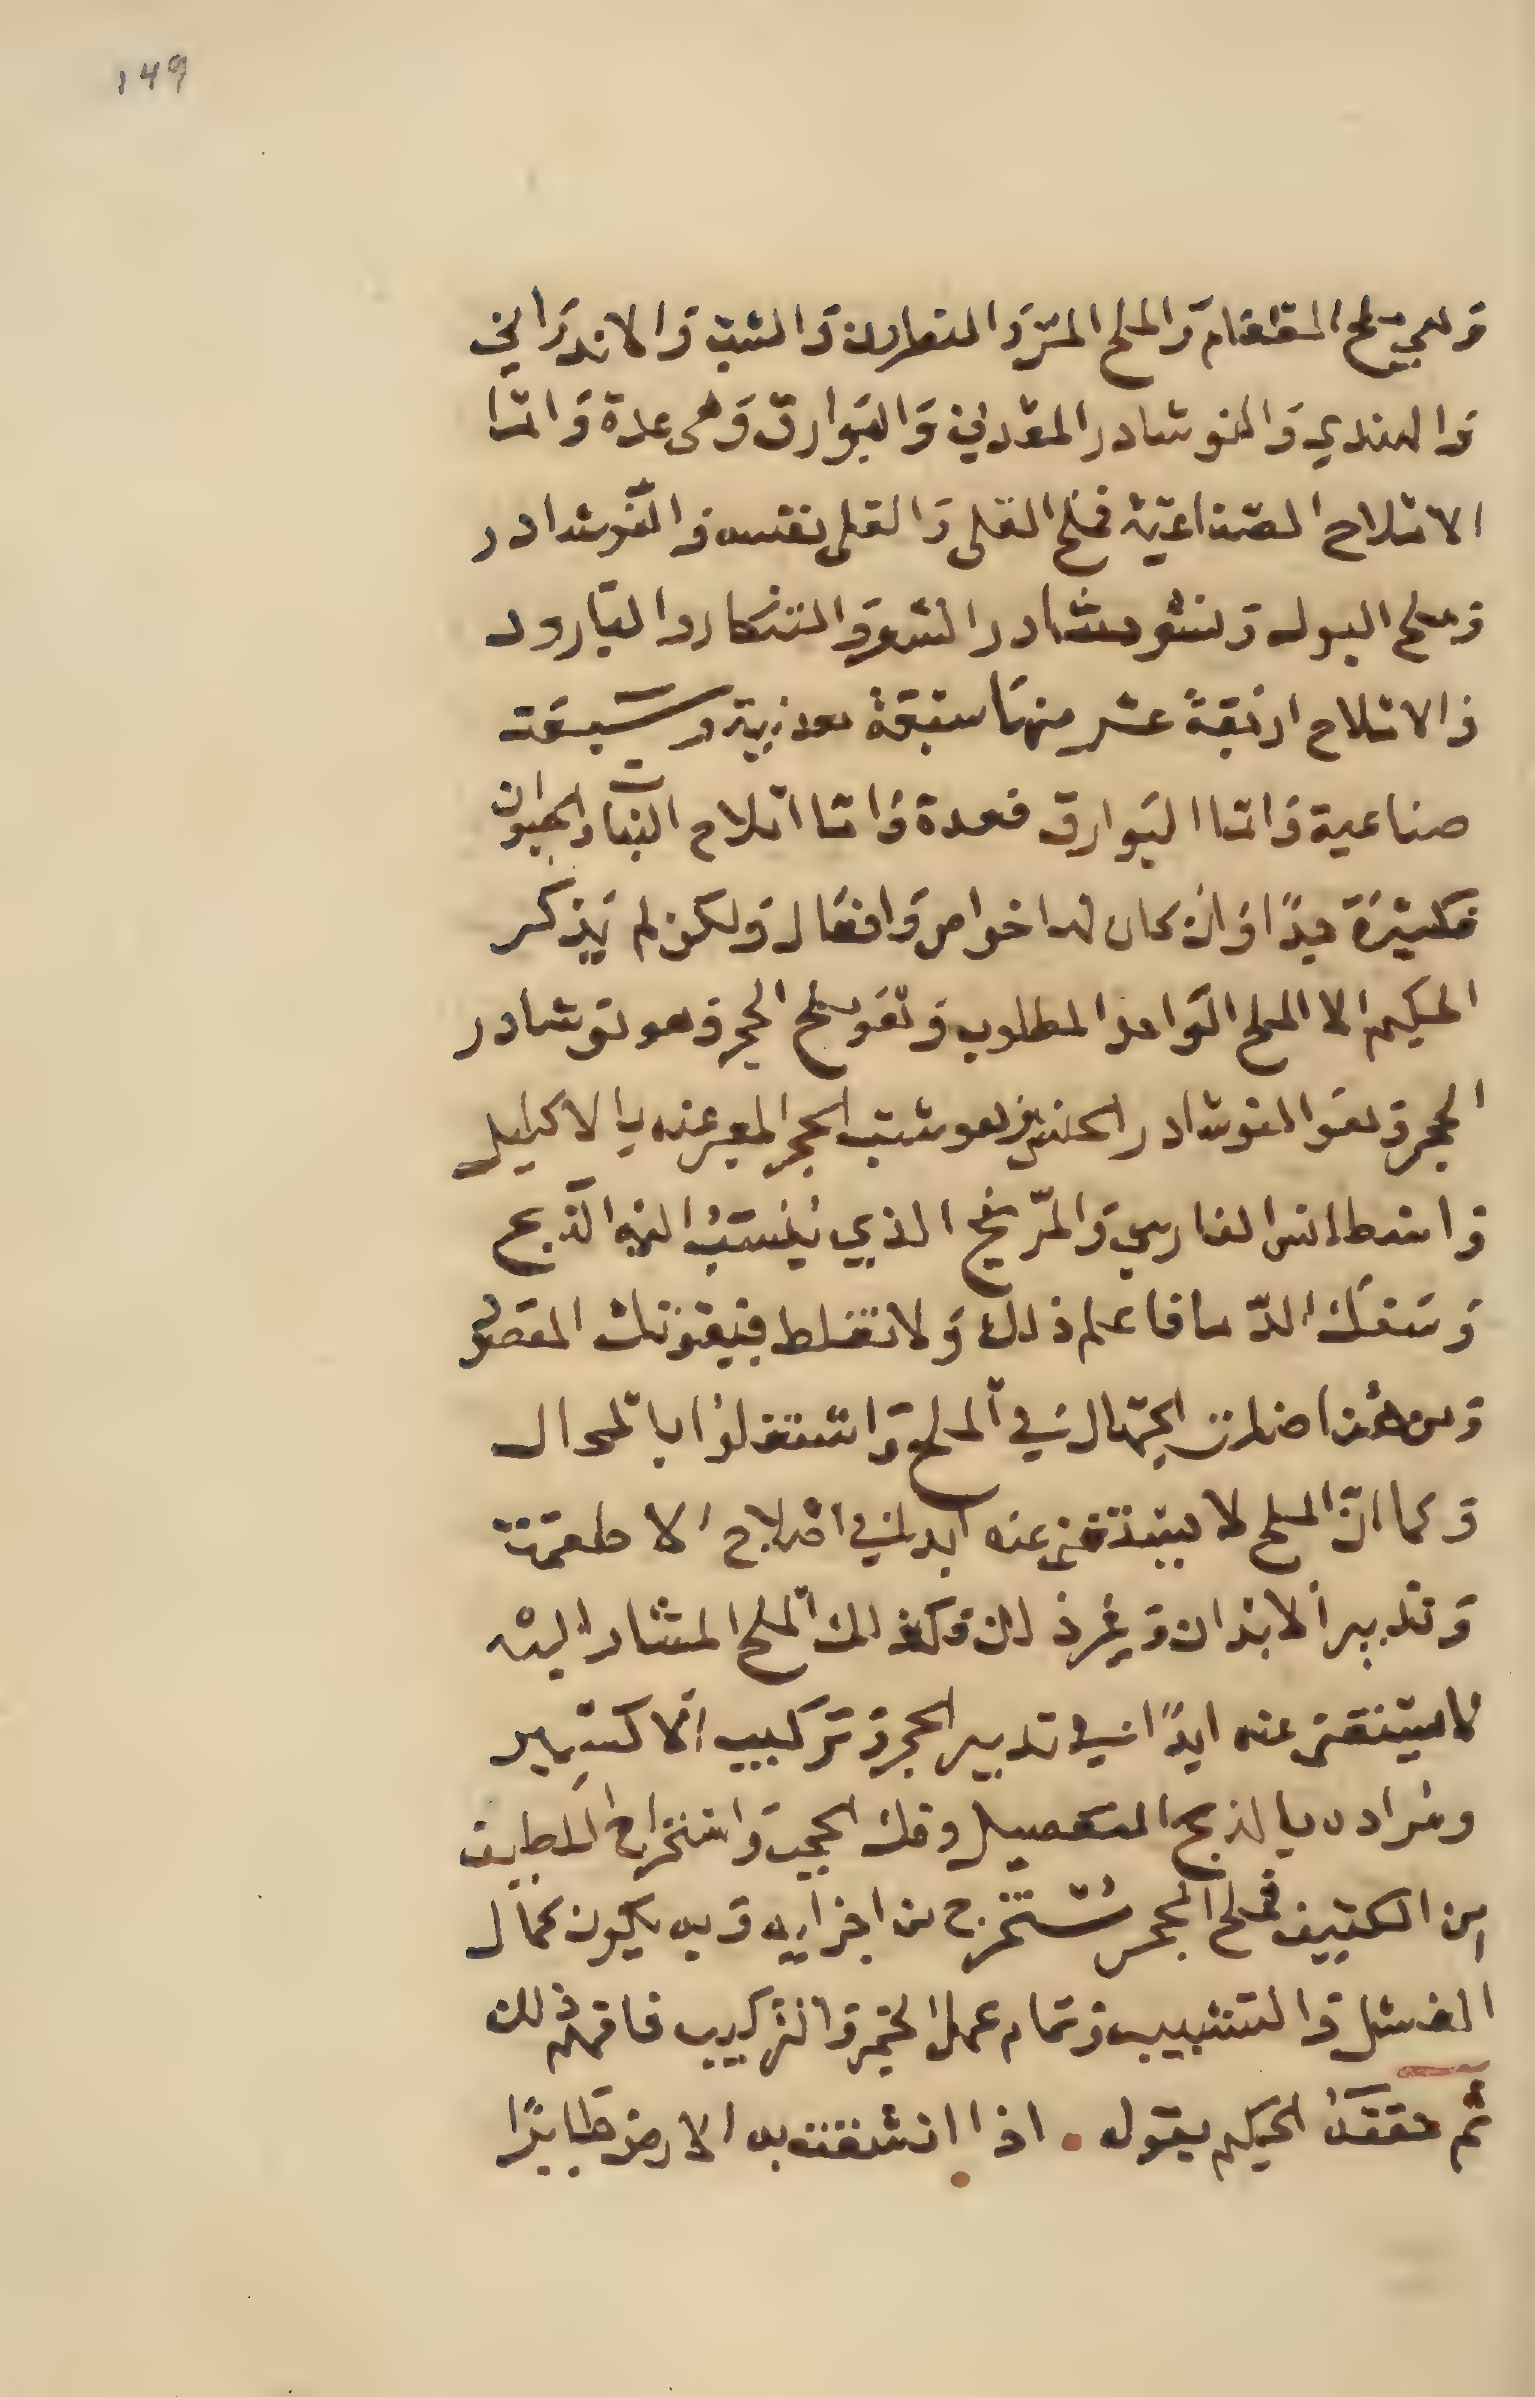 149
وهي ملح الطعام والملح المر والنطرون والشب والاندراني
والهندي والنوشادر المعدني والبوارق وهي عدة واما
الاملاح الصناعية فملح القلى والقلى نفسه والنوشادر
وملح البول ونوشادر الشعر والتنكار والبارود
فالاملاح اربعة عشر منها سبعة معدنية وسبعة
صناعية واما البوارق فعدة واما املاح النبات والحيوان
فكثيرة جدًا وان كان لها خواص وافعال ولكن لم يذكر
الحكيم الا الملح الواحد المطلوب وهو ملح الحجر وهو نوشادر
الحجر وهو النوشادر وهو شب الحجر المعبر عنه بالاكليل
الفارسي والمرّيخ الذي يُنسبُ اليه الذبح
وسفك الدّما فاعلم ذلك ولا تغلط فيفوتك المقصود
ومن هنا ضلت الجهال في الملح واشتغلوا بالمحال
وكما انّ الملح لا يستغنى عنه ابدا في اصلاح الاطعمة
وتدبير الابدان وغير ذلك وكذلك الملح المشار اليه
لا يستغنى عنه ابدًا في تدبير الحجر وتركيب الاكسير
ومراده بالذبح التفصيل وفك الحجب واستخراج اللطيف
من الكثيف فملح الحجر مُستخرج من اجزايه وبه يكون كمال
الغسل والتشبيب وتمام عمل الخمر والتركيب فافهم ذلك
ثم حققه الحكيم بقوله . اذا انشفت به الارض طابدًا